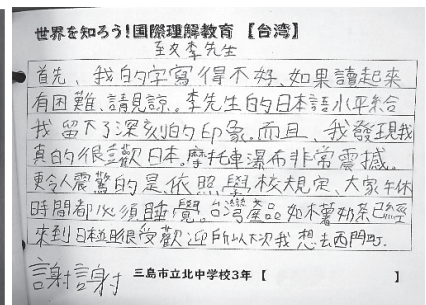 世界を知ろう！国際理解教育 【台湾】
至文李先生
首先、我的字寫得不好、如果讀起來
有困難、請見諒。李先生的日本語水平給
我留下了深刻的印象。而且、我發現我
真的很喜歡日本。摩托車瀑布非常震撼。
更令人震驚的是依照學校規定、大家午休
時間都必須睡覺。台灣產品如木薯奶茶已經
來到日本並很受歡迎所以次我想去西門町。
謝謝 三島市立北中学校3年【 】